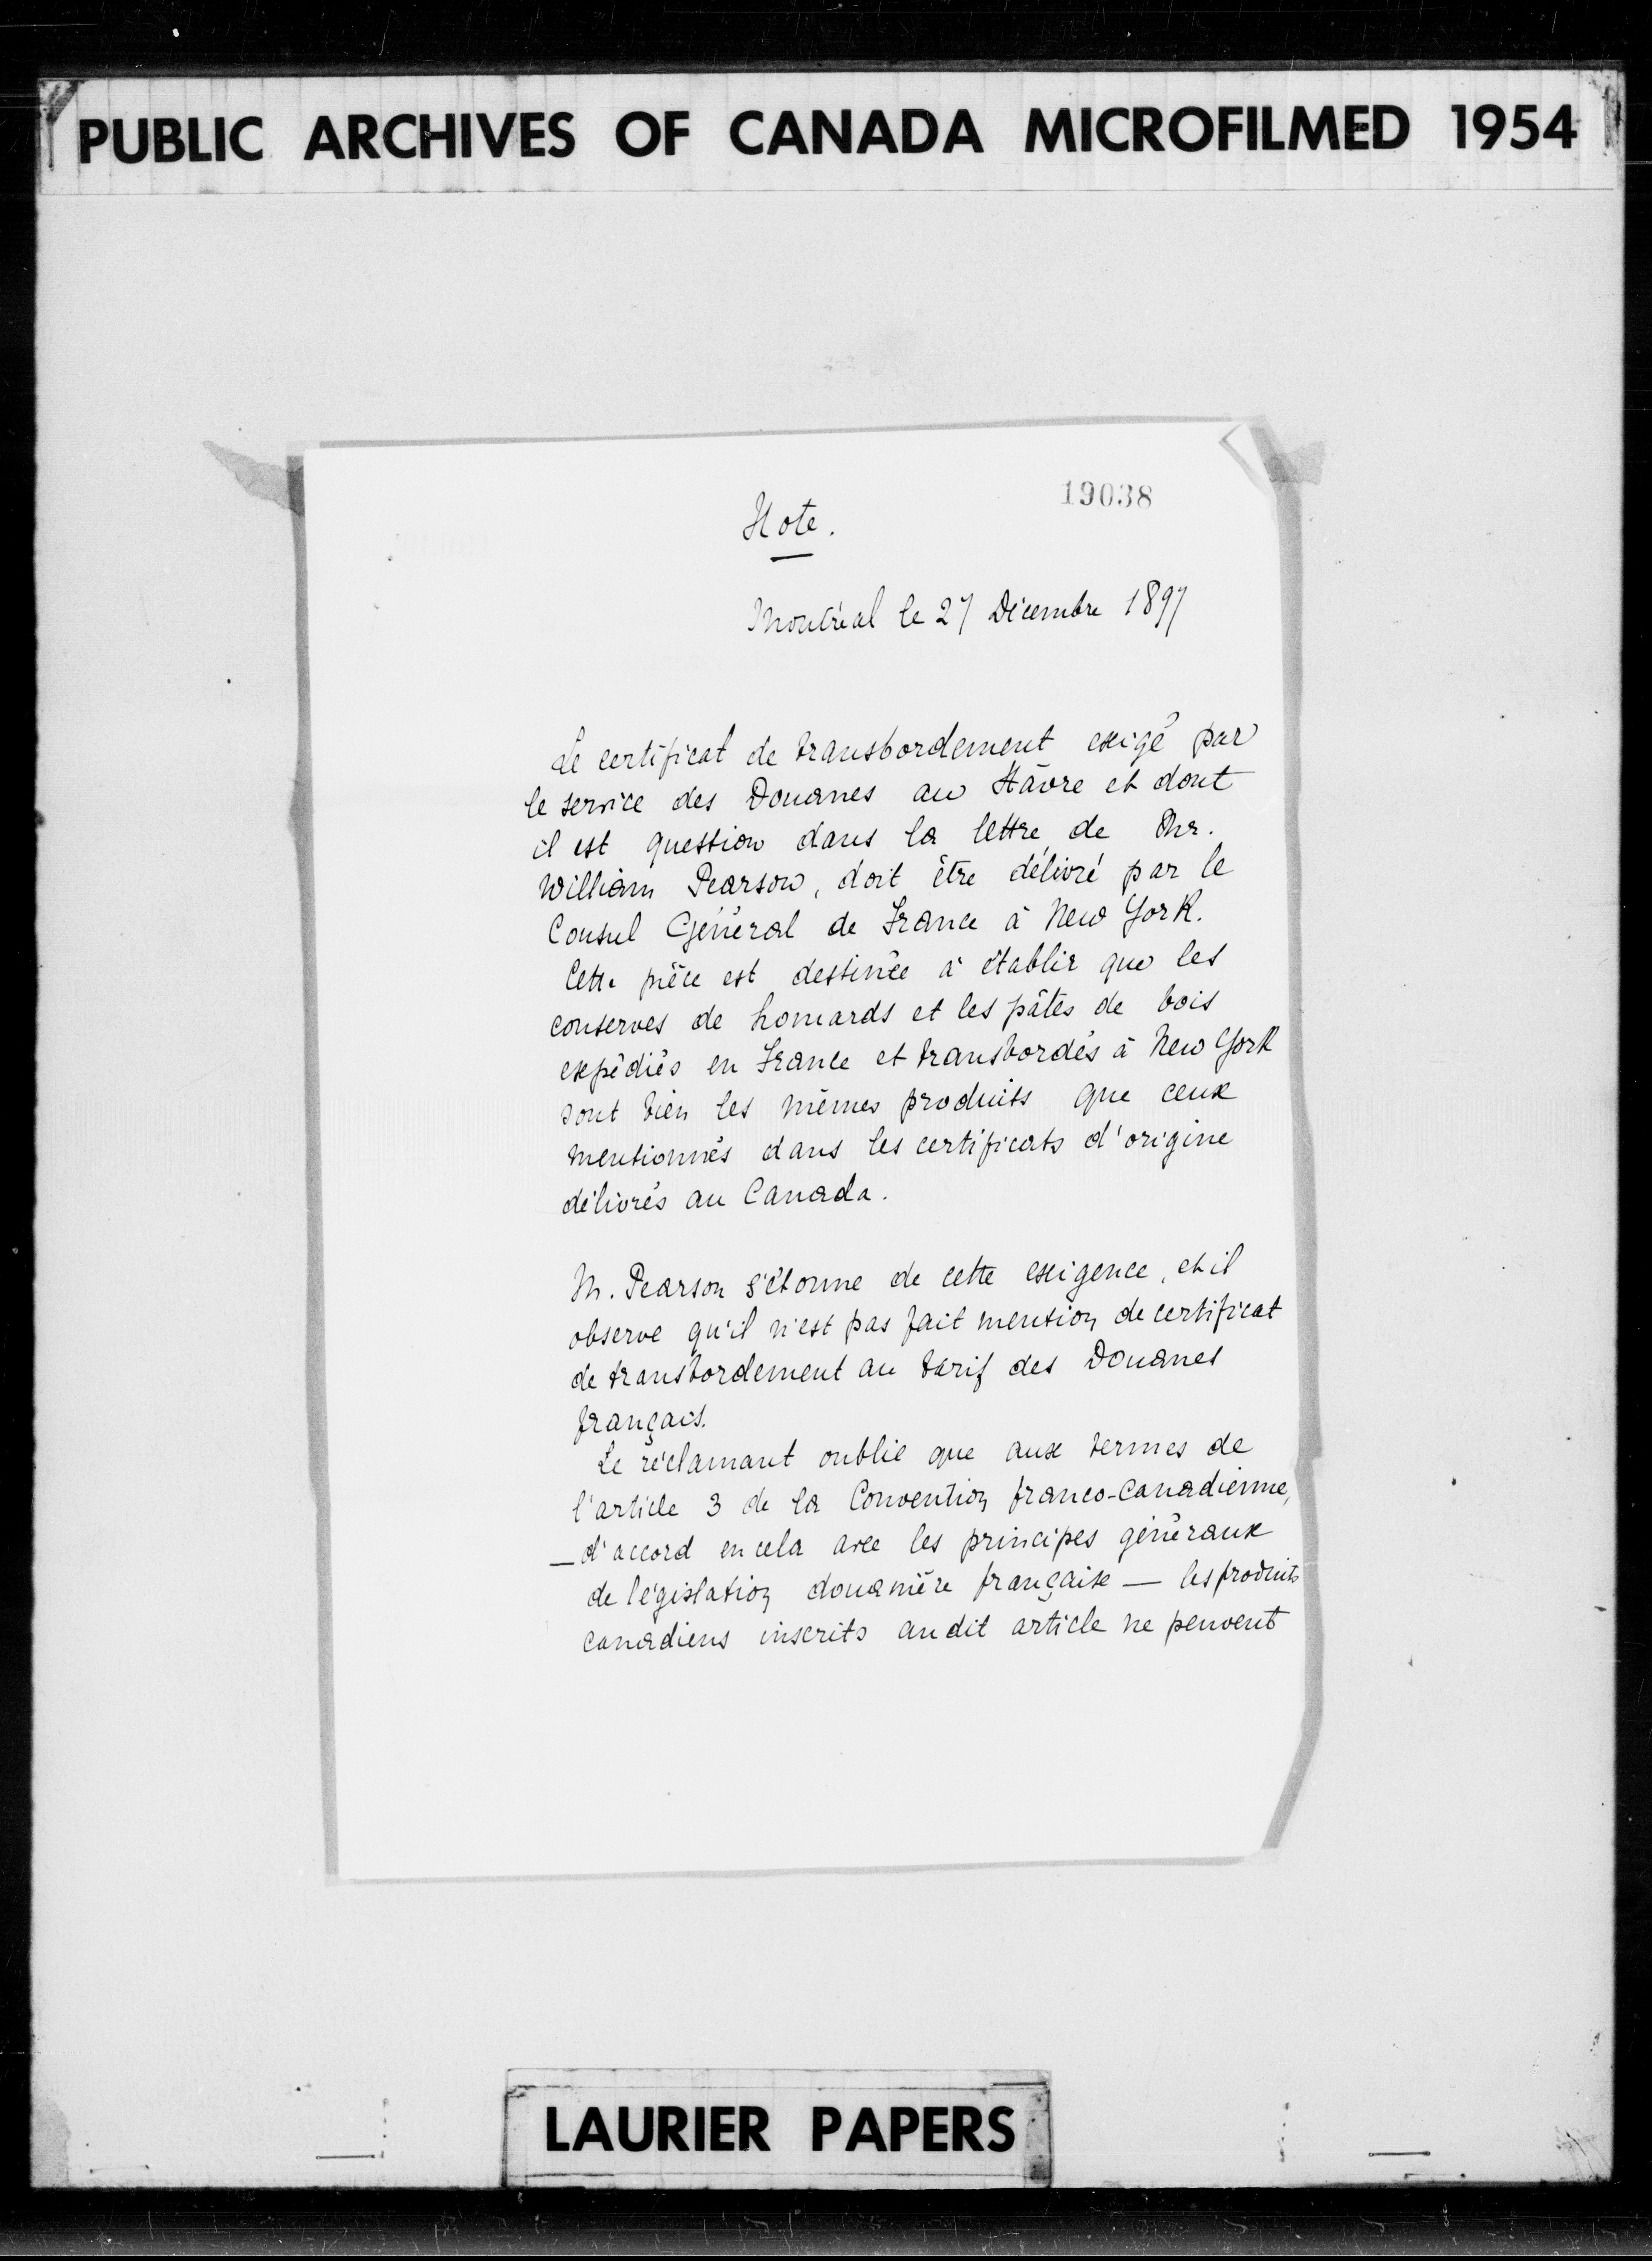 PUBLIC ARCHIVES OF CANADA MICROFILMED 1954
19038
Note.
Montréal le 27 Décembre 1897
Le certificat de transbordement exigé par
le service des Douanes au Hâvre et dont
il est question dans la lettre de Mr.
William Pearson, doit être délivré par le
Consul Général de France à New York.
Cette pièce est destinée à établir que les
conserves de homards et les pâtes de bois
expédiés en France et transbordés à New York
sont bien les mêmes produits que ceux
mentionnés dans les certificats d'origine
délivrés au Canada.
M. Pearson s'étonne de cette exigence, et il
observe qu'il n'est pas fait mention de certificat
de transbordement au tarif des Douanes
français.
Le réclamant oublie que aux termes de
l'article 3 de la Convention franco-Canadienne,
— d'accord en cela avec les principes généraux
de législation douanière française — les produits
canadiens inscrits au dit article ne peuvent
LAURIER PAPERS